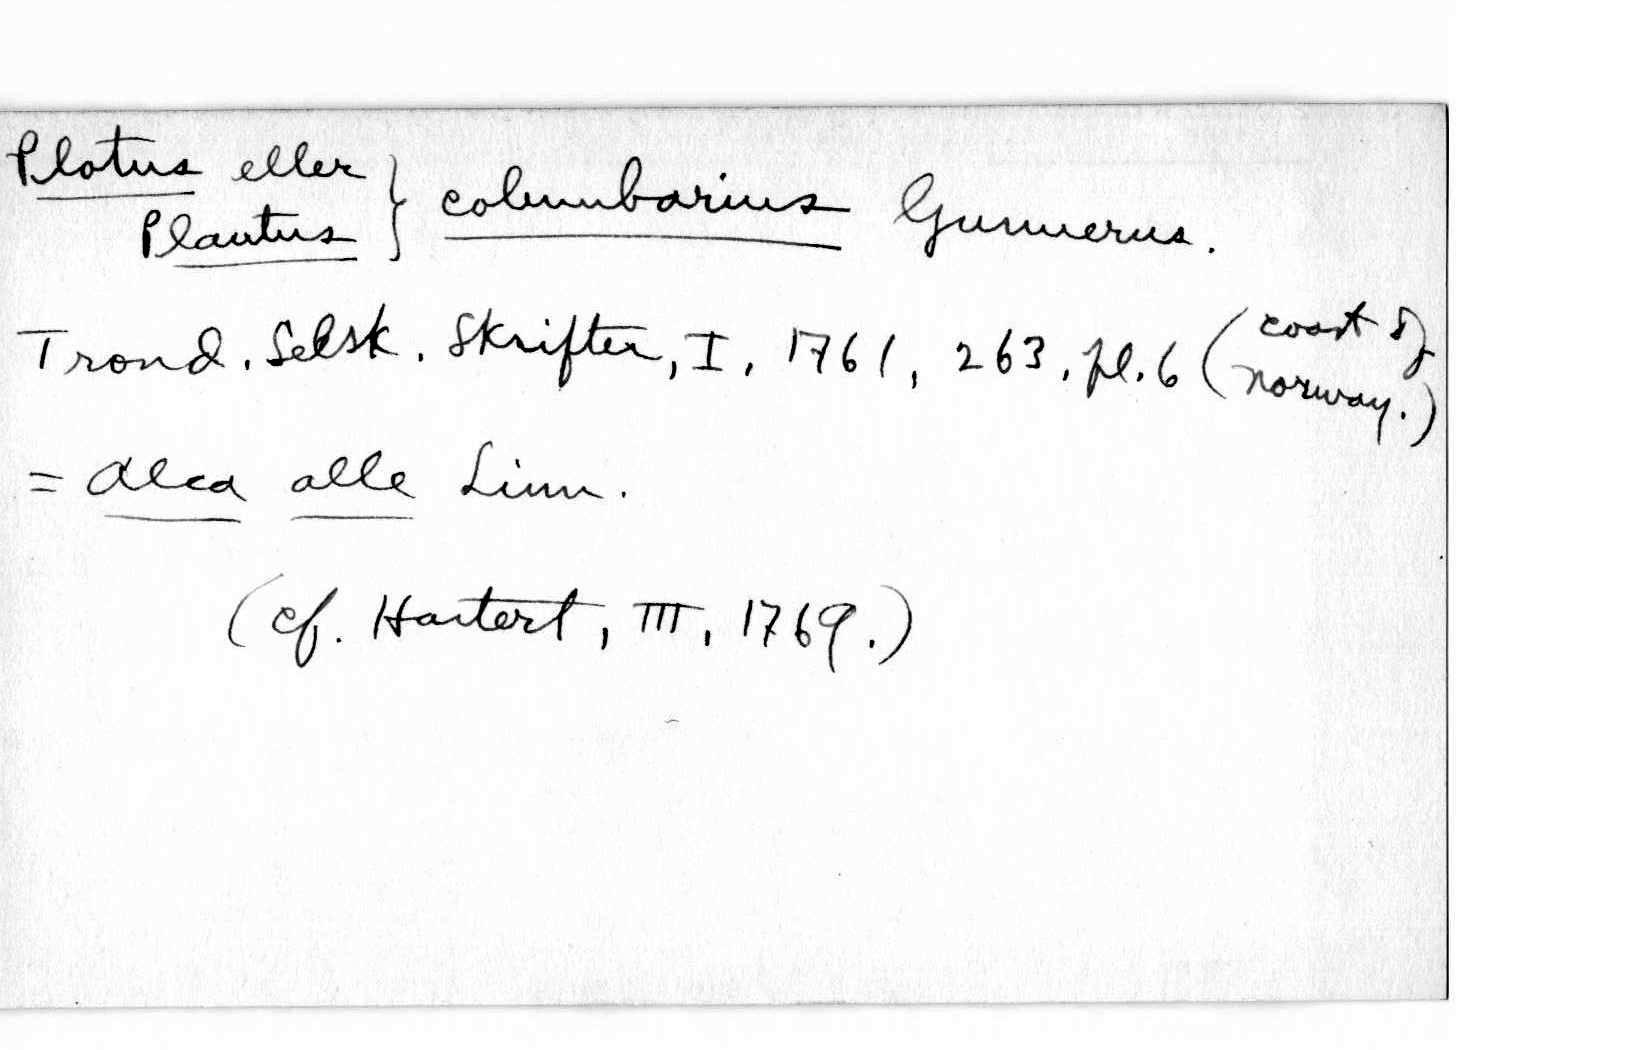 Plotus eller
Plautus } columbarius Gunnerus.
Trond. Selsk. Skrifter, I, 1761, 263, pl. 6 (coast of
Norway.)
= Alca alle Linn.
(cf. Hartert, III, 1769.)